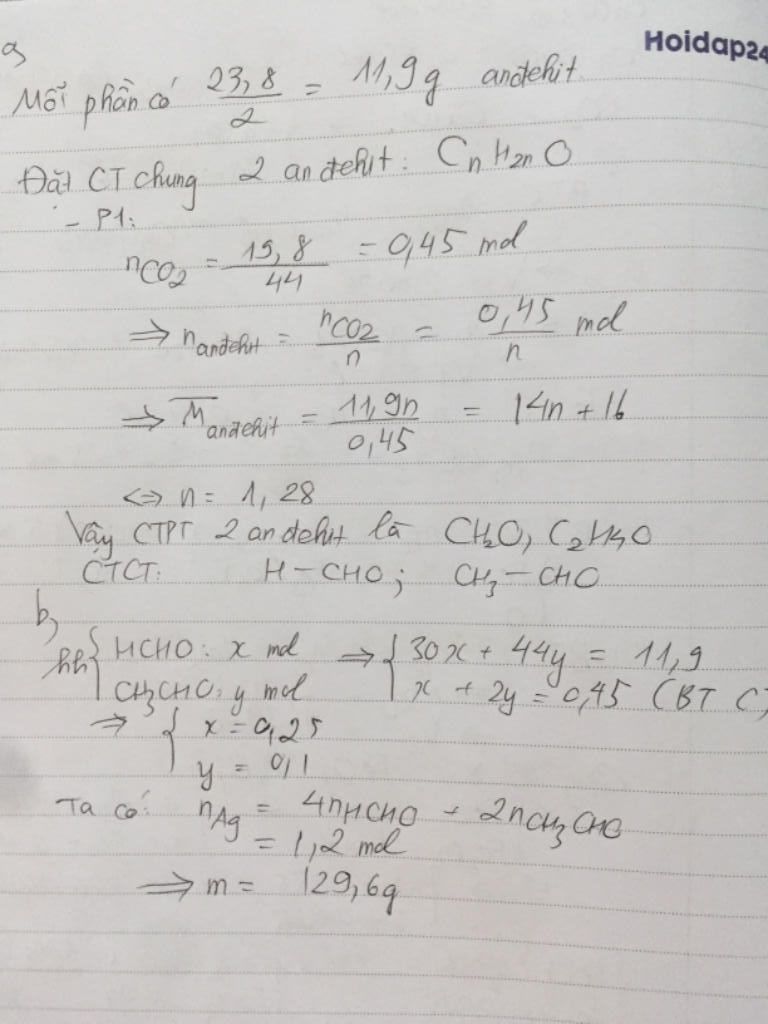 Hoidap24
a,
Mỗi phần có 23,8/2 = 11,9g anđehit
Đặt CT chung 2 anđehit: CnH2nO
- P1:
nCO2 = 19,8/44 = 0,45 mol
=> nanđehit = nCO2/n = 0,45/n mol
=> M̅anđehit = 11,9n/0,45 = 14n + 16
<=> n = 1,28
Vậy CTPT 2 anđehit là CH2O, C2H4O
CTCT: H-CHO; CH3-CHO
b,
hh { HCHO: x mol => { 30x + 44y = 11,9
CH3CHO: y mol x + 2y = 0,45 (BT C)
=> { x = 0,25
y = 0,1
Ta có: nAg = 4nHCHO + 2nCH3CHO
= 1,2 mol
=> m = 129,6g